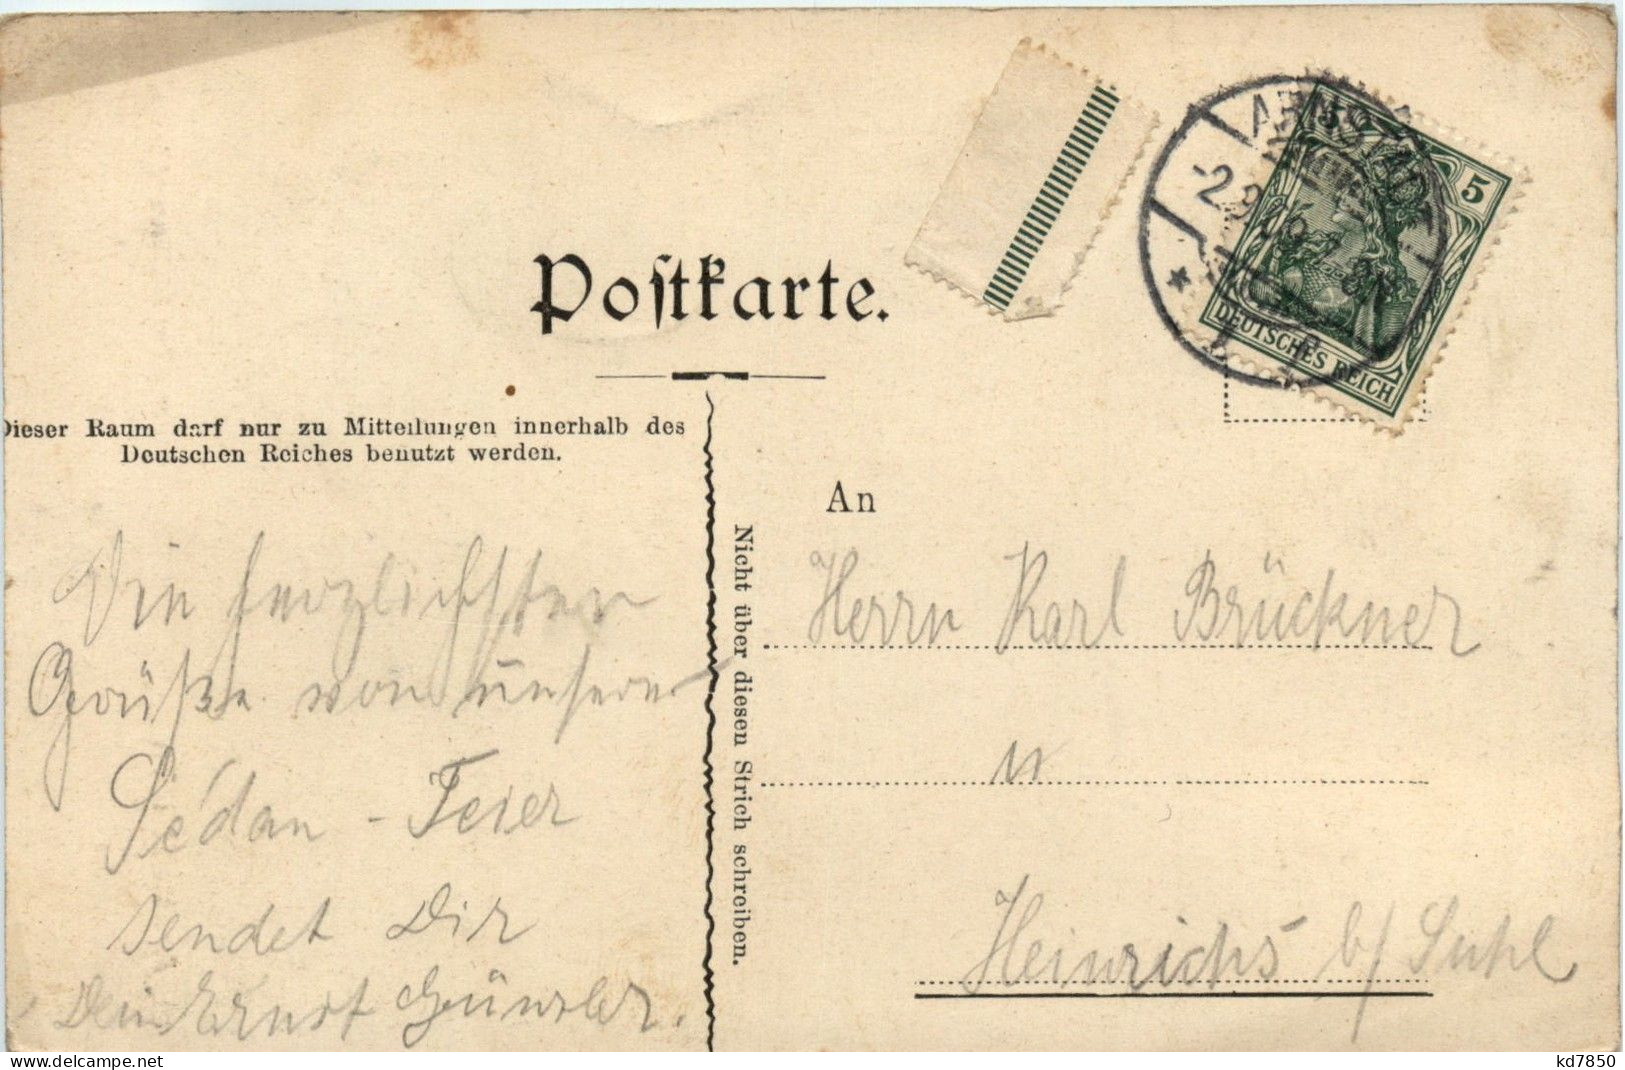 Postkarte.
Dieser Raum darf nur zu Mitteilungen innerhalb des
Deutschen Reiches benutzt werden.
Nicht über diesen Strich schreiben.
ARNSTADT
-2.9.
5
DEUTSCHES REICH
An
Herrn Karl Brückner
in
Heinrichs b/ Suhl
Die herzlichsten
Grüße von unserer
Sédan - Feier
sendet Dir
Dein Ernst
www.delcampe.net
kd7850